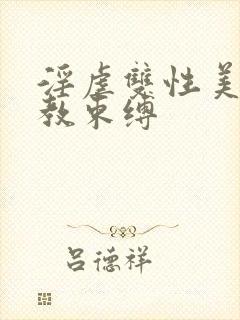 淫虐雙性美
教束缚
吕德祥